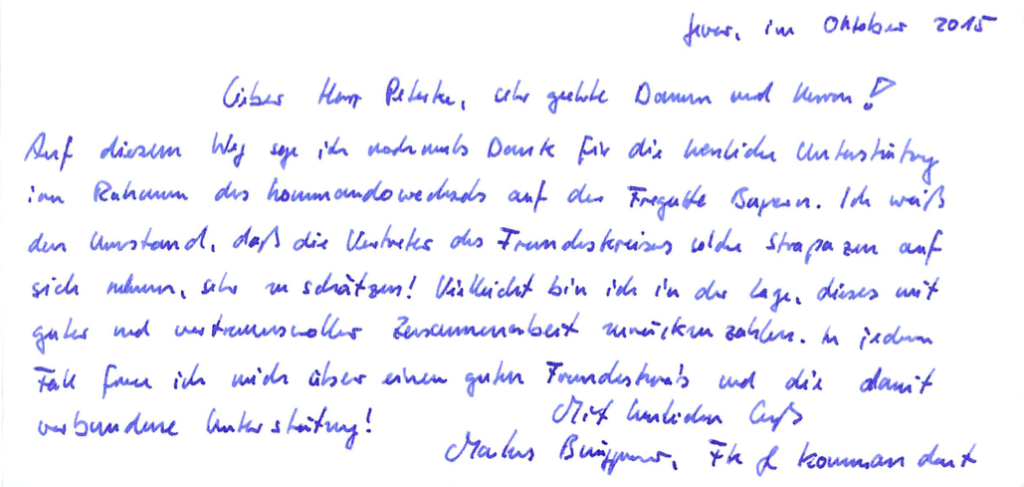 Jever, im Oktober 2015
Lieber Herr Peterke, sehr geehrte Damen und Herren!
Auf diesem Weg sage ich nochmals Dank für die herzliche Unterstützung
im Rahmen des Kommandowechsels auf der Fregatte Bayern. Ich weiß
den Umstand, daß die Vertreter des Freundeskreises solche Strapazen auf
sich nehmen, sehr zu schätzen! Vielleicht bin ich in der Lage, dieses mit
guter und vertrauensvoller Zusammenarbeit zurückzuzahlen. In jedem
Fall freue ich mich über einen guten Freundeskreis und die damit
verbundene Unterstützung!
Mit herzlichem Gruß
Markus Brüggemeier, FK & Kommandant